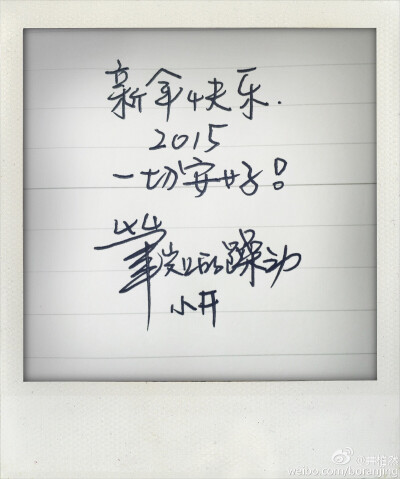 新年快乐.
2015
一切安好!
岁月的躁动
小开
@井柏然
weibo.com/boranjing